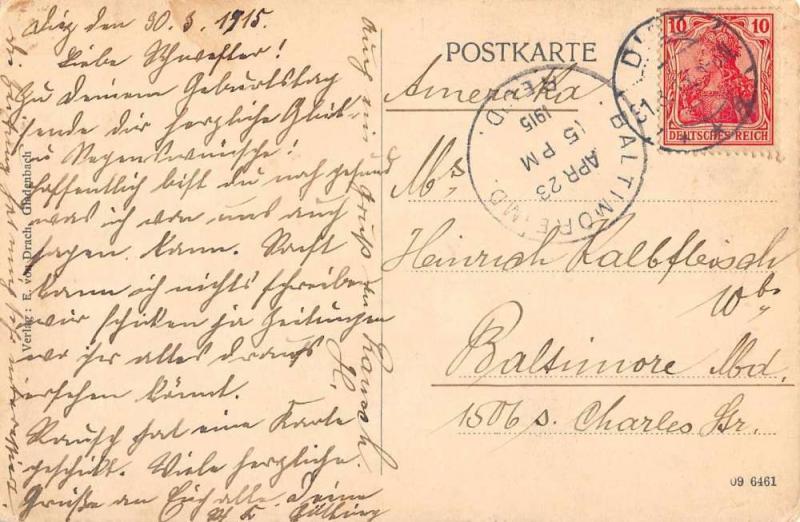 den 30. 3. 1915.
Liebe Schwester!
Zu Deinem Geburtstag
sende dir herzliche Glück-
u Segenswünsche!
hoffentlich bist du noch gesund
was ich von uns auch
sagen kann. Sonst
kann ich nichts schreiben
wir schicken ja Zeitungen
wo ihr alles draus
ersehen könnt.
Rausch hat eine Karte
geschikt. Viele herzliche
Grüße an Euch alle. Deine
Verlag: E. von Drach, Gladenbach
auch ein Gruß von Rausch
POSTKARTE
Amerika
Mrs
Heinrich Kalbfleisch
Wb.
Baltimore Md.
1506 s. Charles Str.
09 6461
BALTIMORE, MD.
REC'D.
APR 23
15 PM
1915
10 10
DEUTSCHES REICH